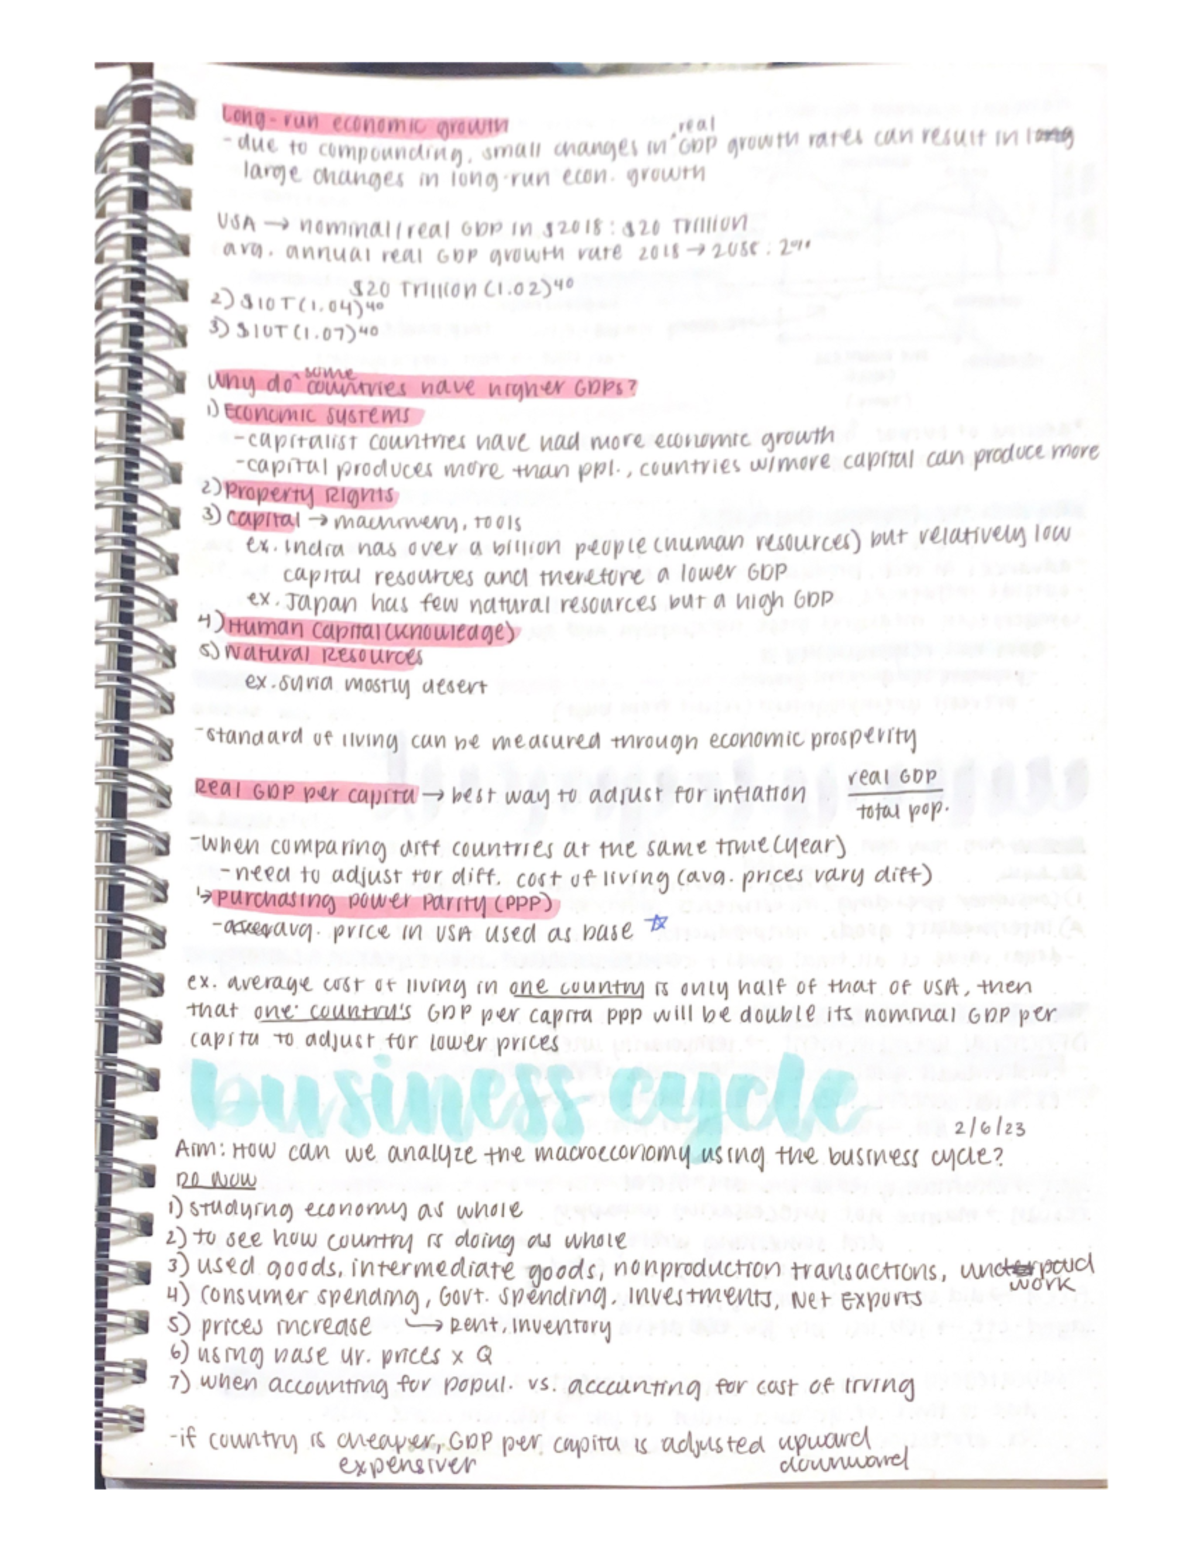 Long-run economic growth
- due to compounding, small changes in real GDP growth rates can result in long
large changes in long-run econ. growth
USA → nominal/real GDP in $2018: $20 Trillion
avg. annual real GDP growth rate 2018 → 2058: 2%
$20 Trillion (1.02)⁴⁰
2) $10T(1.04)⁴⁰
3) $10T(1.07)⁴⁰
Why do some countries have higher GDPs?
1) Economic Systems
-capitalist countries have had more economic growth
-capital produces more than ppl., countries w/more capital can produce more
2) Property Rights
3) Capital → machinery, tools
ex. India has over a billion people (human resources) but relatively low
capital resources and therefore a lower GDP
ex. Japan has few natural resources but a high GDP
4) Human Capital (knowledge)
5) Natural Resources
ex. Syria mostly desert
-standard of living can be measured through economic prosperity
Real GDP per capita → best way to adjust for inflation real GDP / total pop.
-when comparing diff countries at the same time (year)
-need to adjust for diff. cost of living (avg. prices vary diff)
↳ Purchasing Power Parity (PPP)
- avg. price in USA used as base ☆
ex. average cost of living in one country is only half of that of USA, then
that one country's GDP per capita ppp will be double its nominal GDP per
capita to adjust for lower prices
business cycle
2/6/23
Aim: How can we analyze the macroeconomy using the business cycle?
Do Now
1) studying economy as whole
2) to see how country is doing as whole
3) used goods, intermediate goods, nonproduction transactions, underpaid work
4) consumer spending, Govt. spending, Investments, Net Exports
5) prices increase ↳ Rent, inventory
6) using base yr. prices x Q
7) when accounting for popul. vs. accounting for cost of living
-if country is cheaper, GDP per capita is adjusted upward
expensiver downward